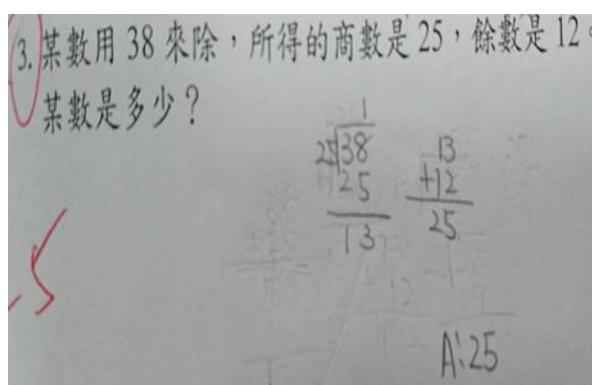 3. 某數用 38 來除，所得的商數是 25，餘數是 12。
某數是多少？
1
25 38
25
13
13
+12
25
A:25